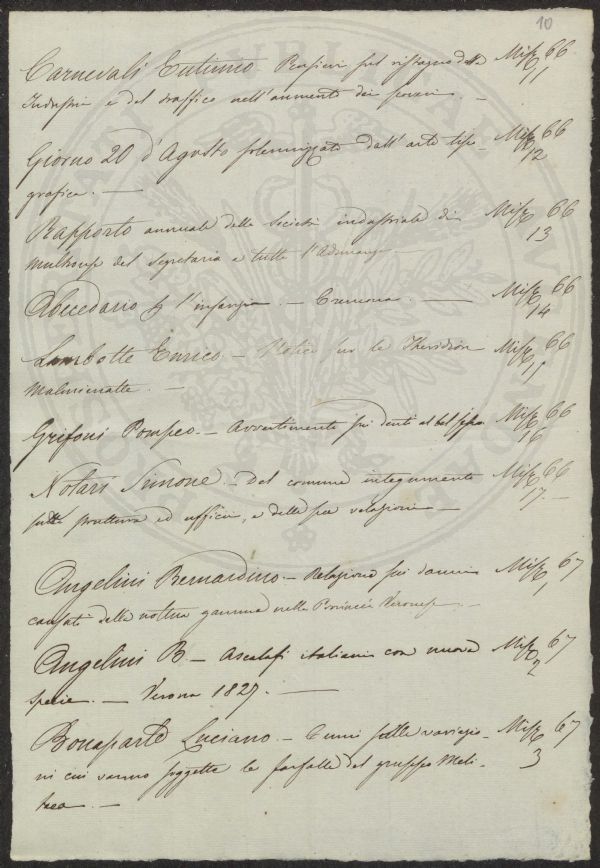 10
Carnevali Eutimio Pensieri sul ristagno delle Misc 66
Industrie e del traffico nell'aumento dei 11
Giorno 20 d'Agosto solennizzato dall'arte tipo- Misc 66
grafica. — 12
Rapporto annuale della Società industriale di Misc 66
Mulhouse del Segretario e tutte l'Adunanze 13
Abecedario p l'infanzia. — Cremona. — Misc 66
14
Lambotte Enrico — Notice sur le Theridion Misc 66
Malmignatte. — 15
Grifoni Pompeo. — Avvertimento sui denti Misc 66
16
Notari Simone — Del comune integumento Misc 66
sulla struttura ed uffici, e delle sue relazioni — 17. —
Angelini Bernardino — Relazione sui danni Misc 67
causati dalla nella Provincia Veronese. — 1
Angelini B — Ascalafi italiani con nuova Misc 67
specie. — Verona 1827. — 2
Bonaparte Luciano. — Cenni sulle variazio- Misc 67
ni cui vanno soggette le farfalle del gruppo Meli- 3
taea. —